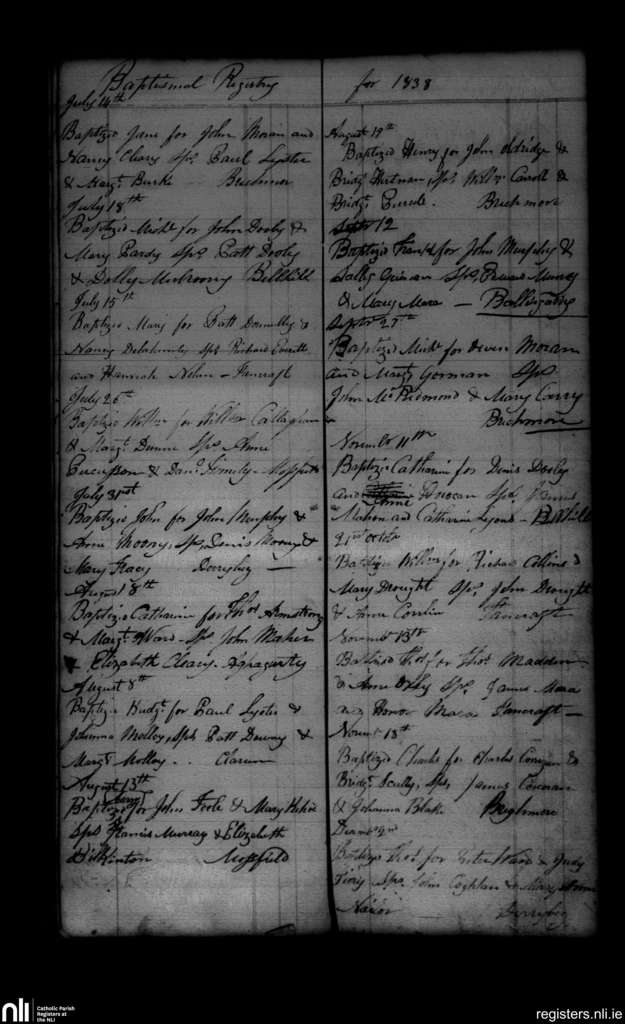 Baptismal Registry
July 14th
Baptized Jane for John Moran and
Nancy Cleary Sps. Paul Lyster
& Margt. Burke Buchmor
July 18th
Baptized Michl. for John Dooly &
Mary Pardy Sps. Patt Dooly
& Dolly Mulroony Bellhill
July 15th
Baptized Mary for Patt Donnelly &
Nancy Delahunty Sps. Richard
and Hannah Nolan - Fancroft
July 26th
Baptized Willm. for Willm. Callaghan
& Margt. Dunne Sps.
& Danl.
July 31st
Baptized John for John Murphy &
Anne Moony, Sps. Denis Moony &
Mary Tracy Derryboy —
August 8th
Baptized Catharine for Thos. Armstrong
& Margt. Ward - Sps. John Maher
& Elizabeth Cleary - Aghagurty
August 8th
Baptized Bridgt. for Paul Lyster &
Johanna Molloy, Sps. Patt Downy &
Margt. Molloy . .
August 13th
Baptized for John Toole & Mary
Sps. Francis Murray & Elizabeth
Wilkinton Mossfield
for 1838
August 19th
Baptized Henry for John Aldridge &
Bridgt. Sps. Willm. Carroll &
Bridgt. Buchmore
Septr 12
Baptized for John Murphy &
Sally Sps.
& Mary Mara —
Septr. 27th
Baptized Michl. for Moran
and Margt. Gorman Sps.
John & Mary Carry
Buchmore
November 11th
Baptized Catharine for Denis Dooly
and Anne Sps.
Mahon and Catharine Lyons - B.Hill
21st Octbr
Baptized Willm. for Richard Collins &
Mary Drought Sps. John Drought
& Anne Conlin Fancroft
November 13th
Baptized Thos. for Thos. Madden
& Anne Sps. James Mara
and Honor Mara Fancroft —
Novemr 18th
Baptized Charles for Charles Corrigan &
Bridgt. Scully, Sps. James Corcoran
& Johanna Blake Bughmore
Decmbr 2nd
Baptized Thos. for Peter Ward & Judy
Sps. John Coghlan & Mary Anne
Derryboy
nli
Catholic Parish
Registers at
the NLI
registers.nli.ie